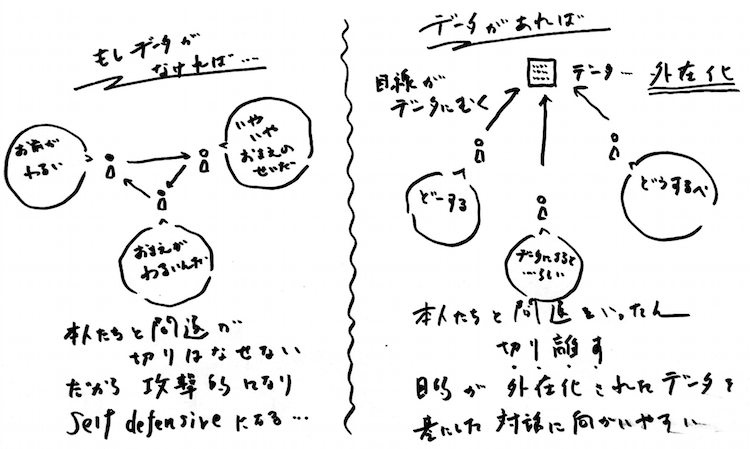 もしデータが
なければ…
お前が
わるい
いや
いや
おまえの
せいだ
おまえが
わるいんだ
本人たちと問題が
切りはなせない
だから攻撃的になり
Self defensiveになる…
データがあれば
目線が
データにむく
データ… 外在化
どーする
データによると
……らしい
どうするべ
本人たちと問題をいったん
切り離す
目的が外在化されたデータを
基にした対話に向かいやすい